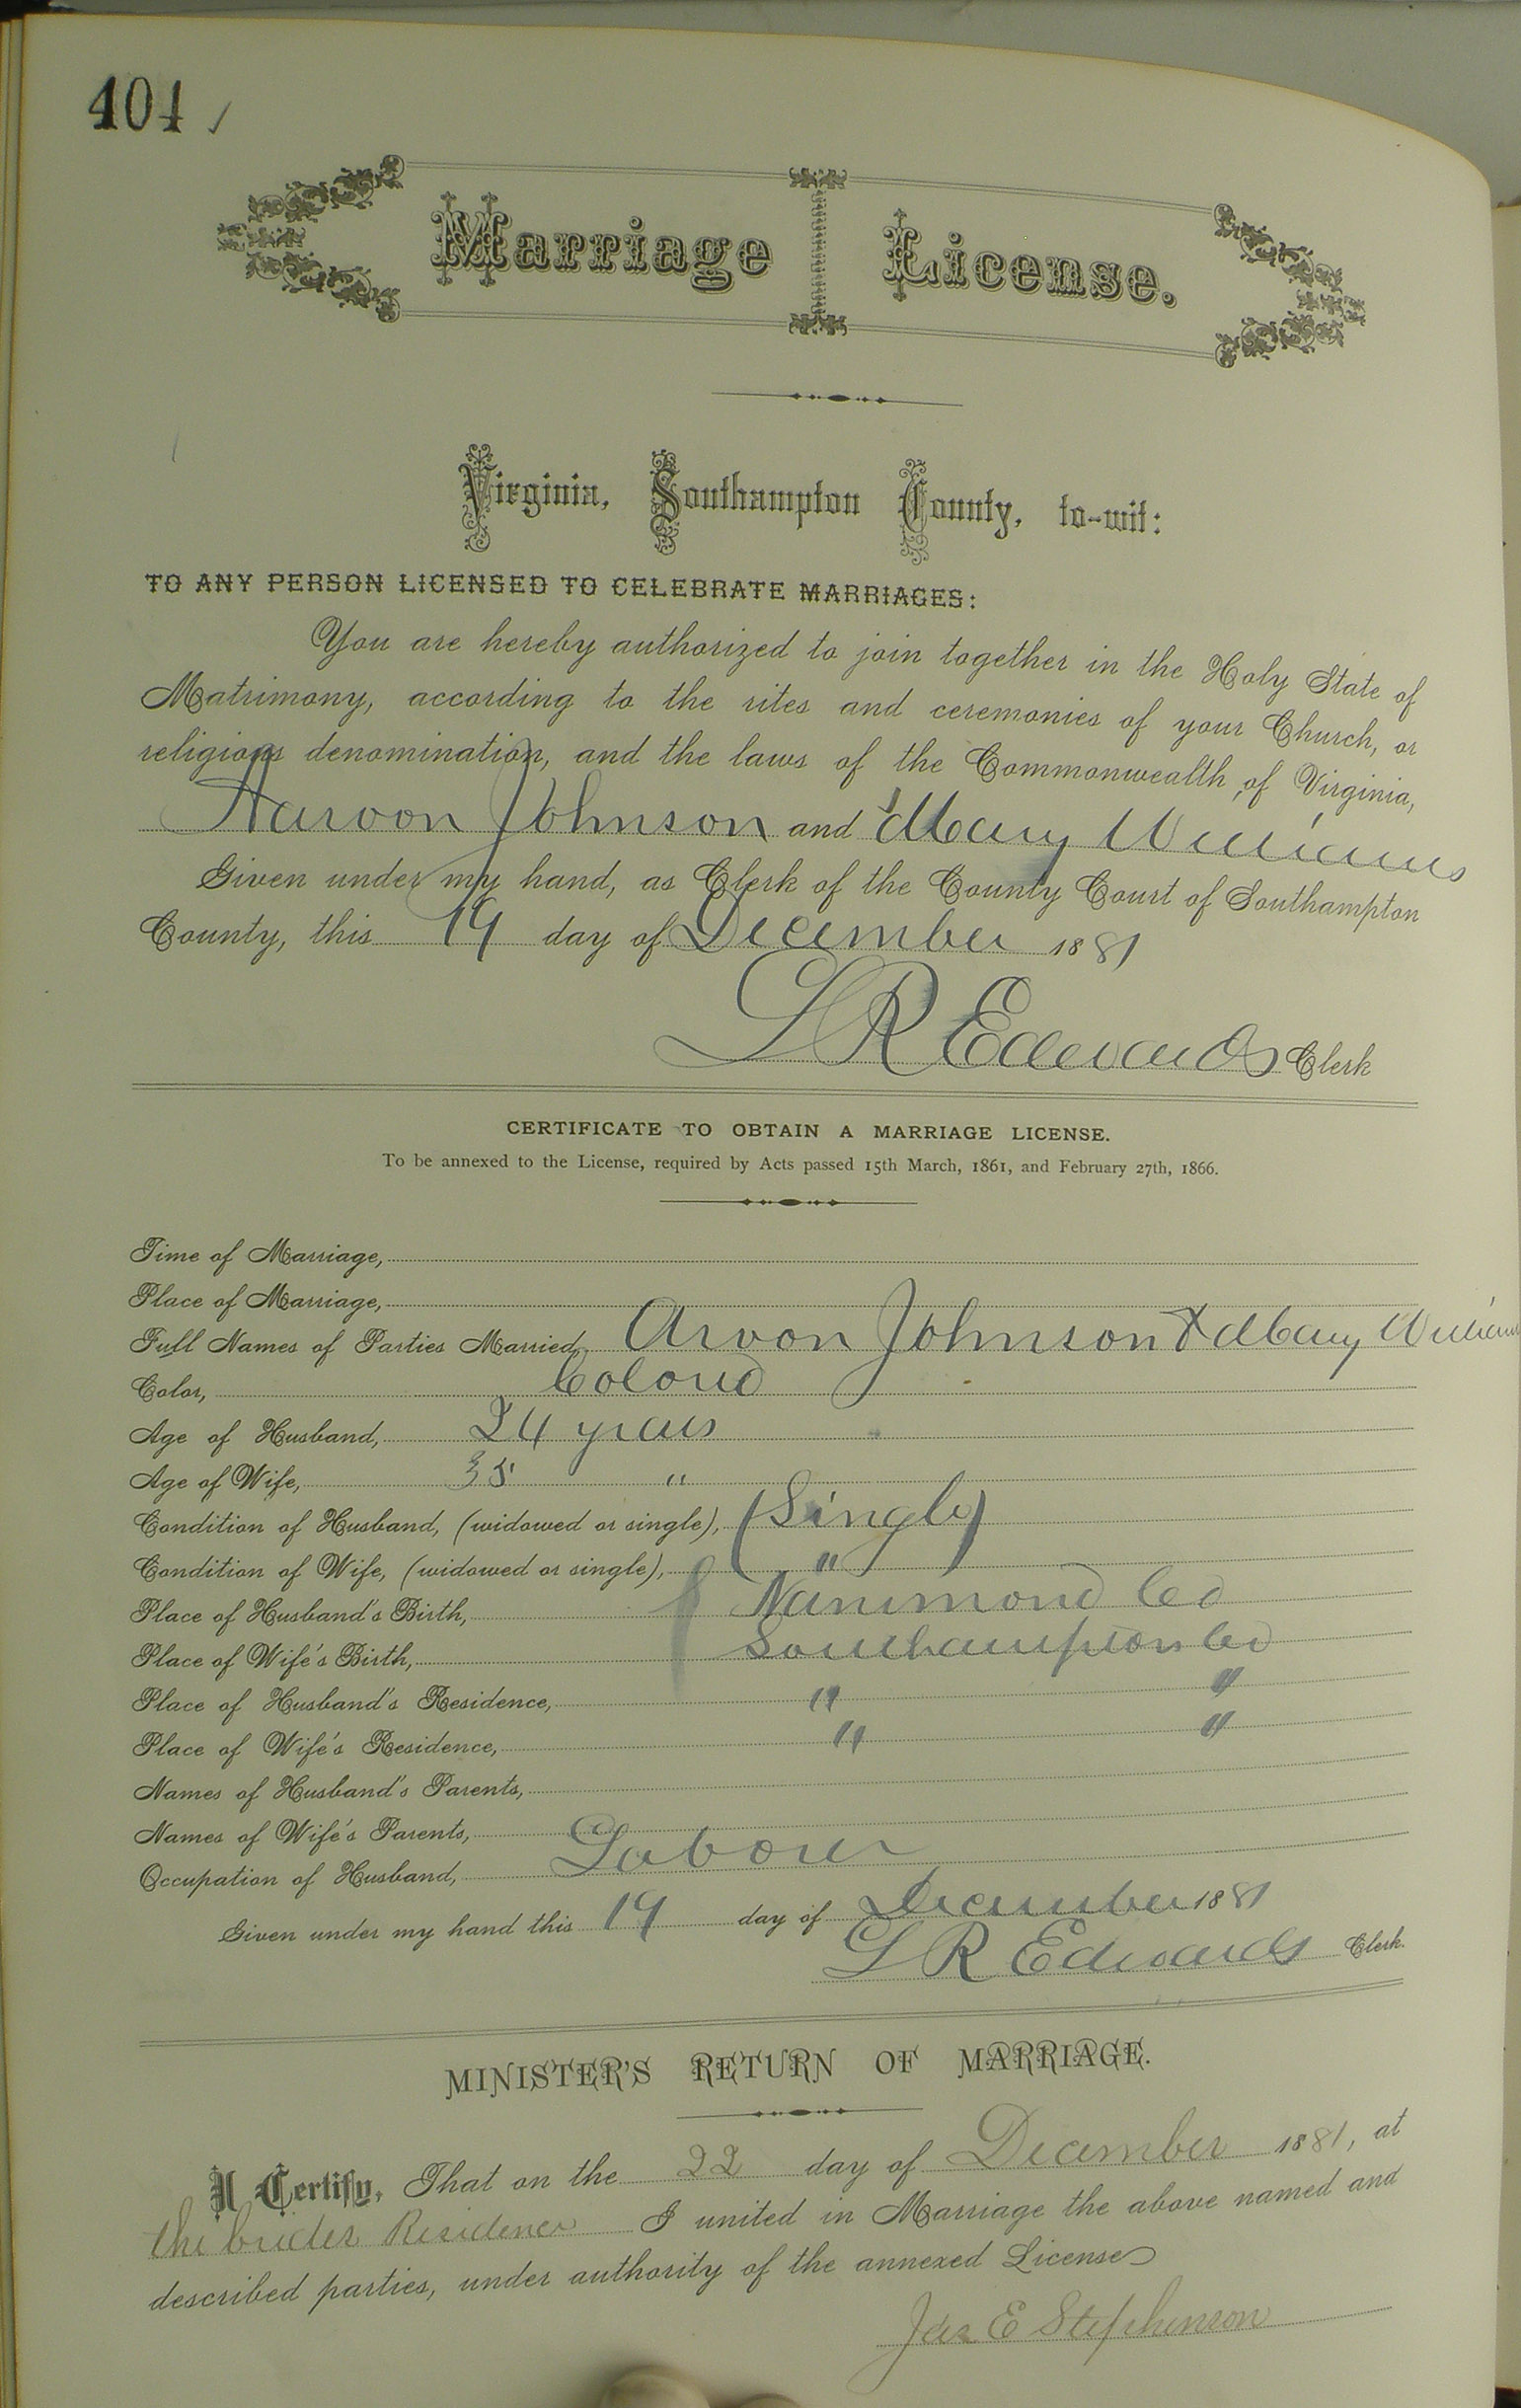 404 ✓
Marriage License.
Virginia, Southampton County, to-wit:
TO ANY PERSON LICENSED TO CELEBRATE MARRIAGES:
You are hereby authorized to join together in the Holy State of
Matrimony, according to the rites and ceremonies of your Church, or
religious denomination, and the laws of the Commonwealth of Virginia,
Aaroon Johnson and Mary Williams
Given under my hand, as Clerk of the County Court of Southampton
County, this 19 day of December 1881
L R Edwards Clerk
CERTIFICATE TO OBTAIN A MARRIAGE LICENSE.
To be annexed to the License, required by Acts passed 15th March, 1861, and February 27th, 1866.
Time of Marriage,
Place of Marriage,
Full Names of Parties Married, Aroon Johnson & Mary William
Color, Colord
Age of Husband, 24 years
Age of Wife, 35 "
Condition of Husband, (widowed or single), (Single)
Condition of Wife, (widowed or single), "
Place of Husband's Birth, Nansimond Co
Place of Wife's Birth, Southampton Co
Place of Husband's Residence, " "
Place of Wife's Residence, " "
Names of Husband's Parents,
Names of Wife's Parents,
Occupation of Husband, Laborer
Given under my hand this 19 day of December 1881
L R Edwards Clerk.
MINISTER'S RETURN OF MARRIAGE.
I Certify, That on the 22 day of December 1881, at
the brides Residence I united in Marriage the above named and
described parties, under authority of the annexed License
Jas E Stephenson